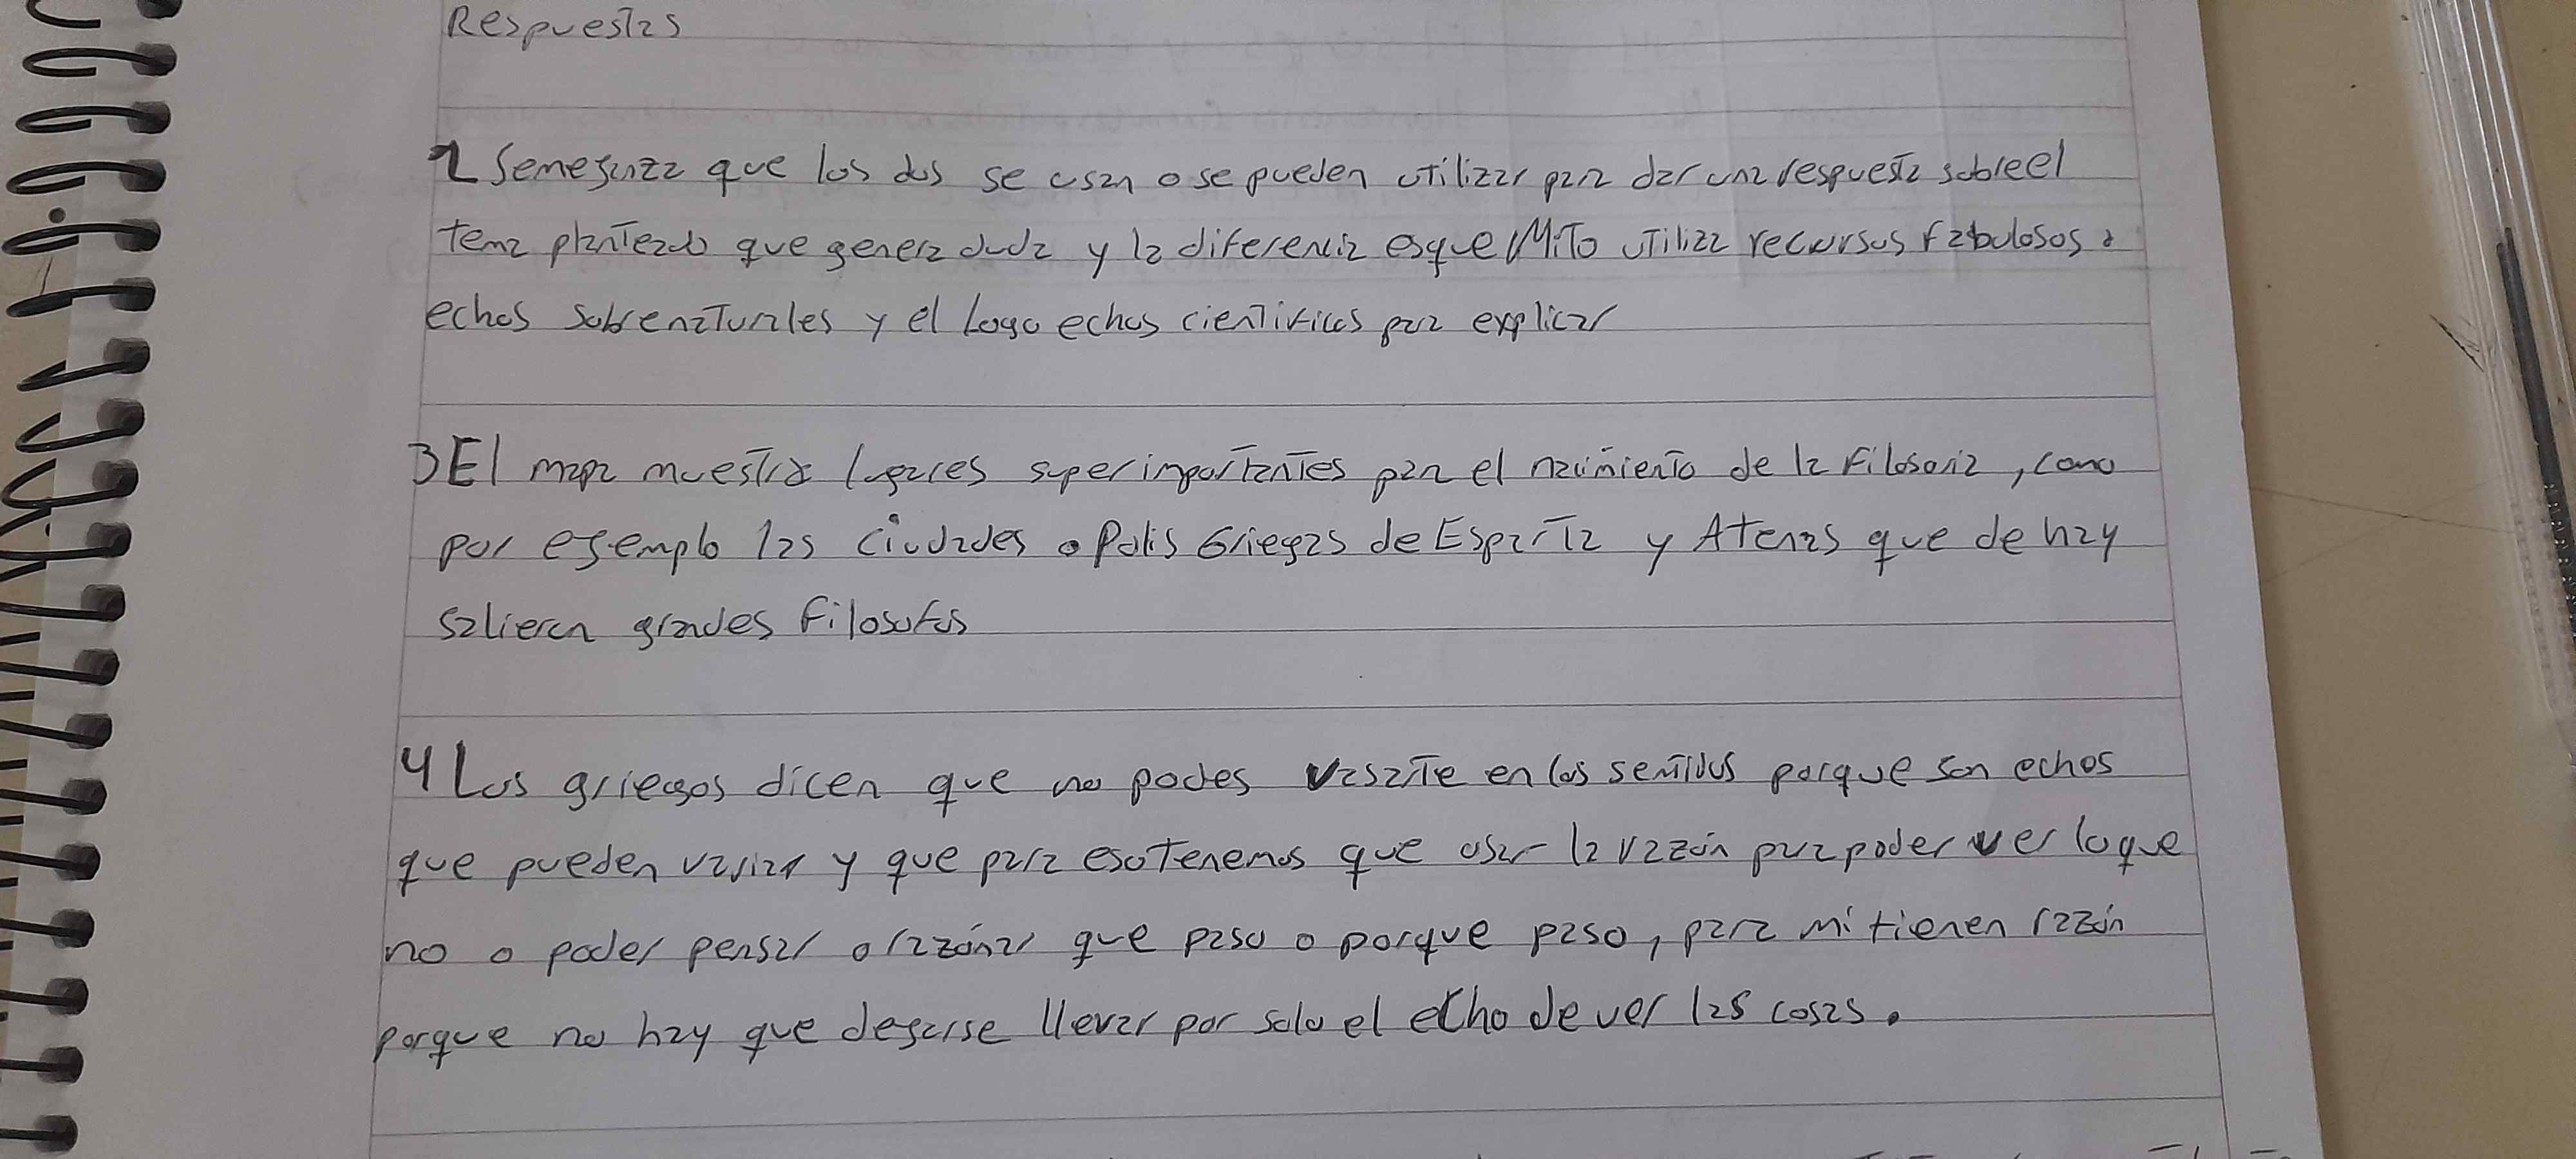 Respuestas
2 Semejanza que los dos se usan o se pueden utilizar para dar una respuesta sobre el
tema planteado que genera duda y la diferencia es que Mito utiliza recursos fabulosos a
echos sobrenaturales y el Logo echos cientificos para explicar
3 El mapa muestra lugares super importantes para el nacimiento de la Filosofia, como
por ejemplo las ciudades o Polis Griegas de Esparta y Atenas que de hay
salieron grandes filosofos
4 Los griegos dicen que no podes vasarte en los sentidos porque son echos
que pueden variar y que para eso tenemos que usar la razón para poder ver lo que
no o poder pensar o razónar que paso o porque paso, para mi tienen razón
porque no hay que dejarse llevar por solo el echo de ver las cosas.